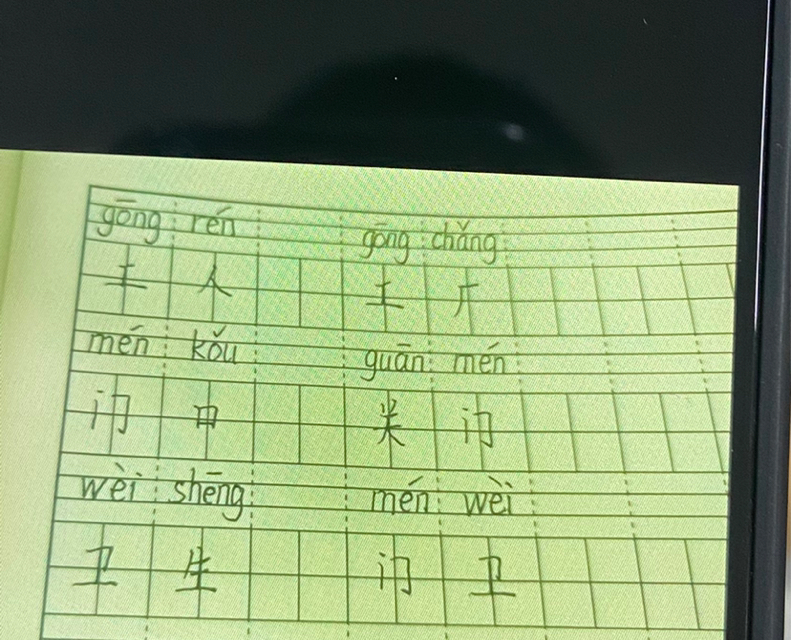 gōng rén gōng chǎng
工 人 工 厂
mén kǒu guān mén
门 口 关 门
wèi shēng mén wèi
卫 生 门 卫